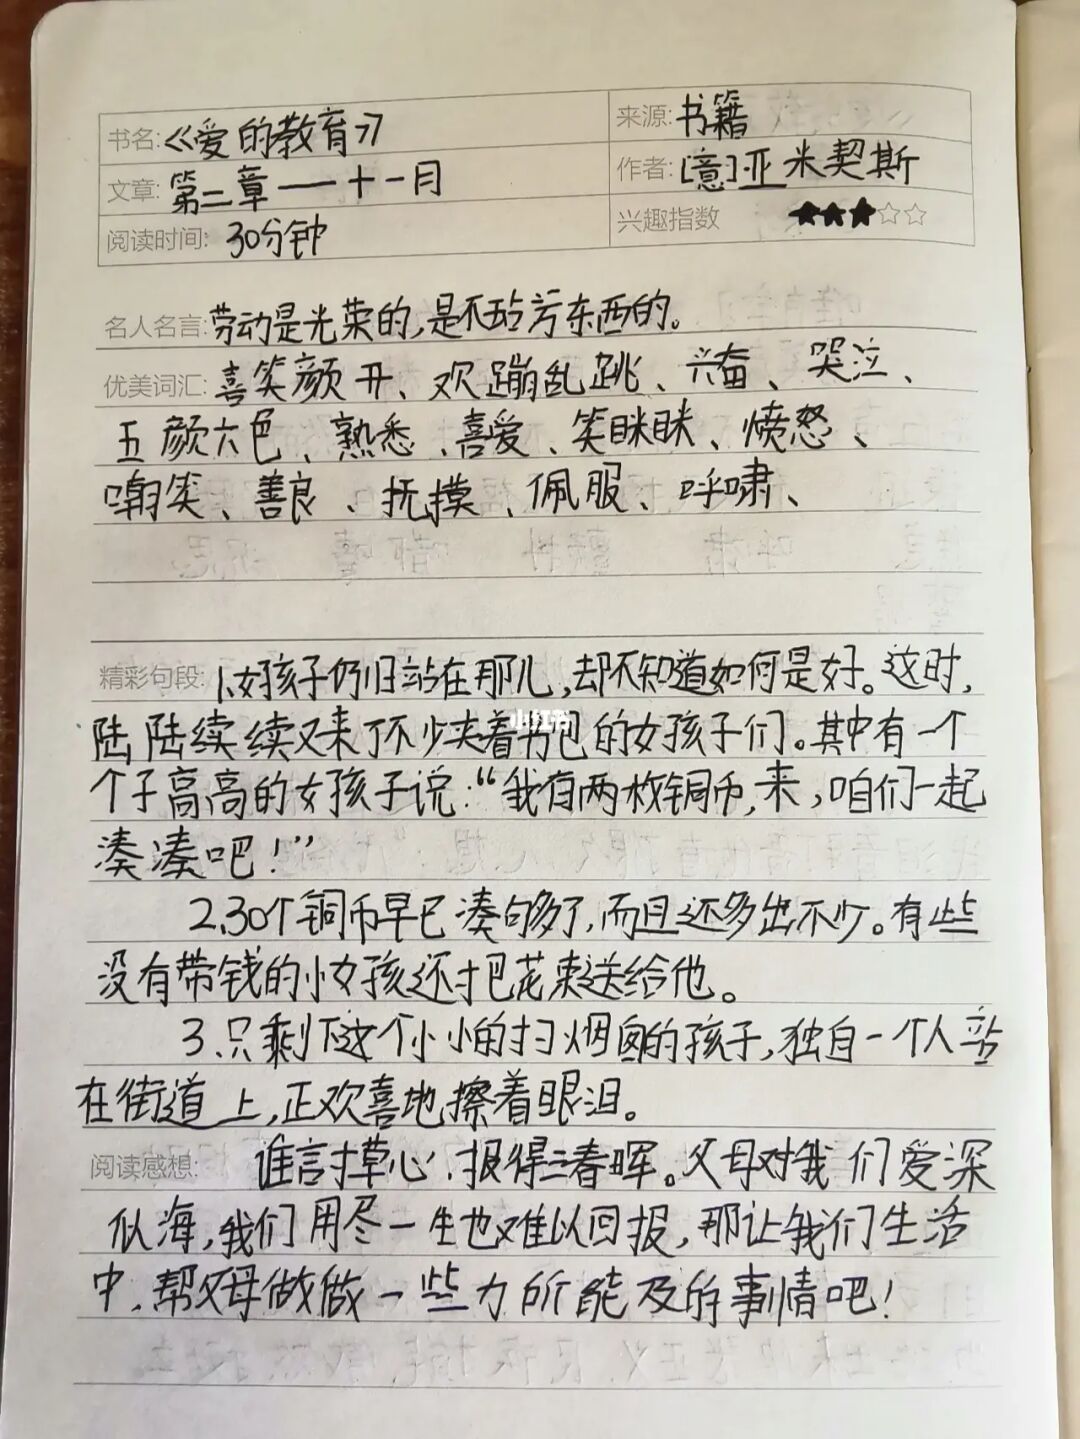 书名:《爱的教育》 来源:书籍
文章:第二章——十一月 作者:[意]亚米契斯
阅读时间:30分钟 兴趣指数 ★★★☆☆
名人名言:劳动是光荣的,是不玷污东西的。
优美词汇:喜笑颜开、欢蹦乱跳、兴奋、哭泣、
五颜六色、熟悉、喜爱、笑眯眯、愤怒、
嘲笑、善良、抚摸、佩服、呼啸、
精彩句段:1、女孩子仍旧站在那儿,却不知道如何是好。这时,
陆陆续续又来了不少夹着书包的女孩子们。其中有一个
小红书
个子高高的女孩子说:“我有两枚铜币,来,咱们一起
凑凑吧!”
2、30个铜币早已凑够了,而且还多出不少。有些
没有带钱的小女孩还把花束送给他。
3、只剩下这个小小的扫烟囱的孩子,独自一个人站
在街道上,正欢喜地擦着眼泪。
阅读感想: 谁言寸草心,报得三春晖。父母对我们爱深
似海,我们用尽一生也难以回报,那让我们生活
中,帮父母做做一些力所能及的事情吧!